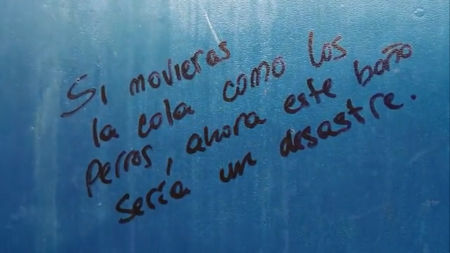 Si movieras
la cola como los
perros, ahora este baño
sería un desastre.